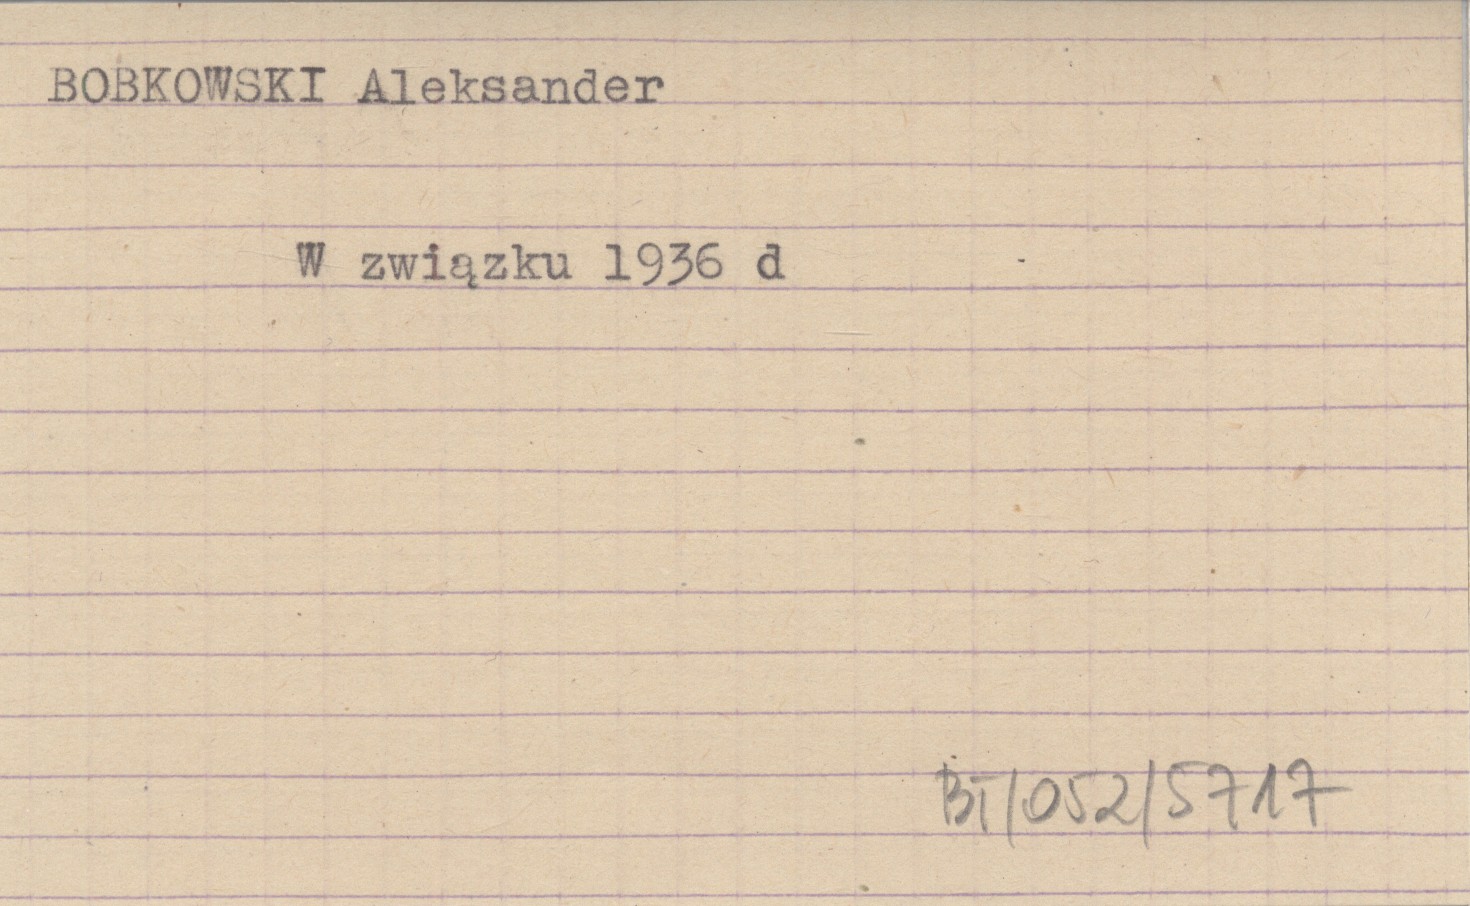 BOBKOWSKI Aleksander
W związku 1936 d
BT/052/5717